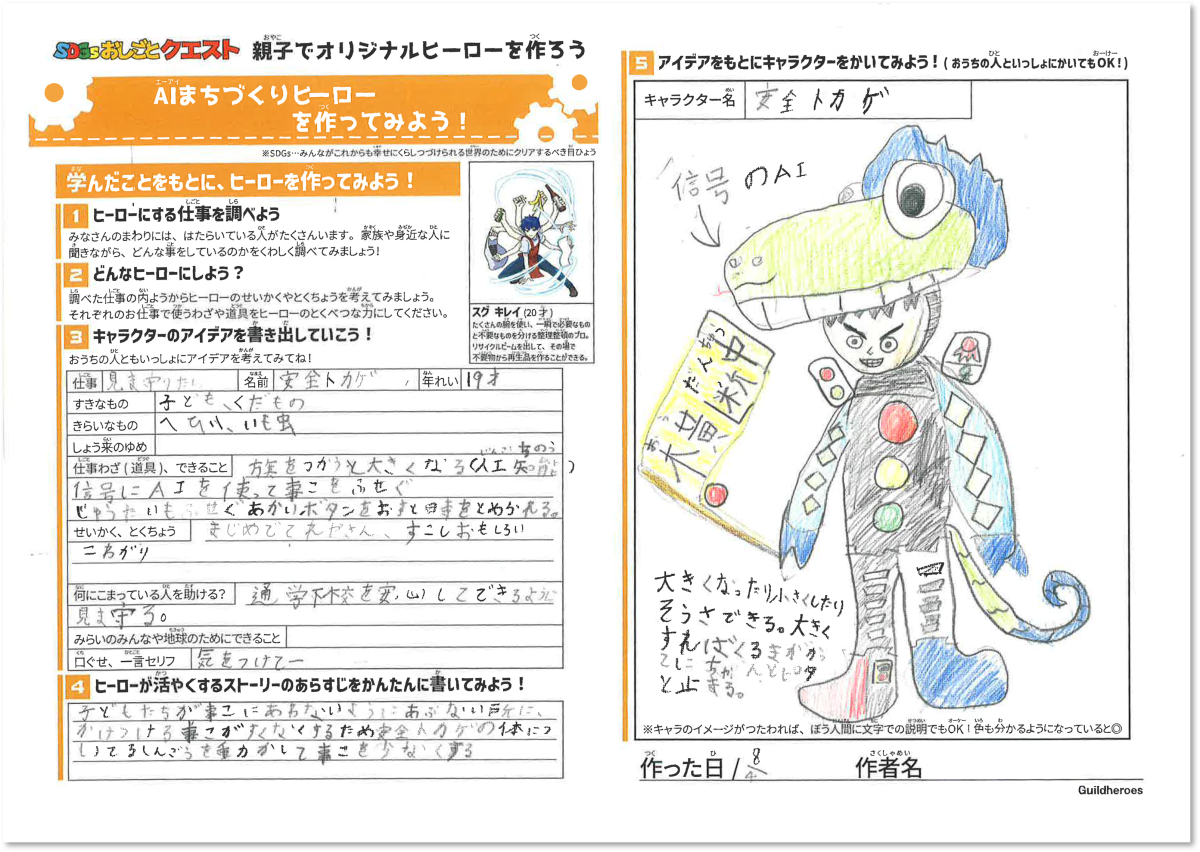 SDGsおしごとクエスト 親子でオリジナルヒーローを作ろう
AIまちづくりヒーロー
を作ってみよう！
※SDGs…みんながこれからも幸せにくらしつづけられる世界のためにクリアするべき目ひょう
学んだことをもとに、ヒーローを作ってみよう！
1 ヒーローにする仕事を調べよう
みなさんのまわりには、はたらいている人がたくさんいます。家族や身近な人に
聞きながら、どんな事をしているのかをくわしく調べてみましょう!
2 どんなヒーローにしよう？
調べた仕事の内ようからヒーローのせいかくやとくちょうを考えてみましょう。
それぞれのお仕事で使うわざや道具をヒーローのとくべつな力にしてください。
スグ キレイ (20才)
たくさんの腕を使い、一瞬で必要なもの
と不要なものを分ける整理整頓のプロ。
リサイクルビームを出して、その場で
不要物から再生品を作ることができる。
3 キャラクターのアイデアを書き出していこう！
おうちの人ともいっしょにアイデアを考えてみてね！
仕事 見ま守りたい 名前 安全トカゲ 年れい 19才
すきなもの 子ども、くだもの
きらいなもの へび、いも虫
しょう来のゆめ
仕事わざ（道具）、できること 旗をつかうと大きくなる(人工知能)
信号にAIを使って事こをふせぐ
じゅうたいもふせぐあかいボタンをおすと車をとめれる。
せいかく、とくちょう まじめでてれやさん、すこしおもしろい
こわがり
何にこまっている人を助ける？ 通学下校を安心してできるように
見ま守る。
みらいのみんなや地球のためにできること
口ぐせ、一言セリフ 気をつけてー
4 ヒーローが活やくするストーリーのあらすじをかんたんに書いてみよう！
子どもたちが事こにあわないようにあぶない所に、
かけつける事こがすくなくするため安全トカゲの体につ
いてるしんごうを動かして事こを少なくする
5 アイデアをもとにキャラクターをかいてみよう！( おうちの人といっしょにかいてもOK！)
キャラクター名 安全トカゲ
信号のAI
おう
だんちゅう
横断中
大きくなったり小さくしたり
そうさできる。大きく
すればくるまがかく
と止まる。
※キャラのイメージがつたわれば、ぼう人間に文字での説明でもOK！色も分かるようになっていると◎
作った日 / 8/4 作者名
Guildheroes